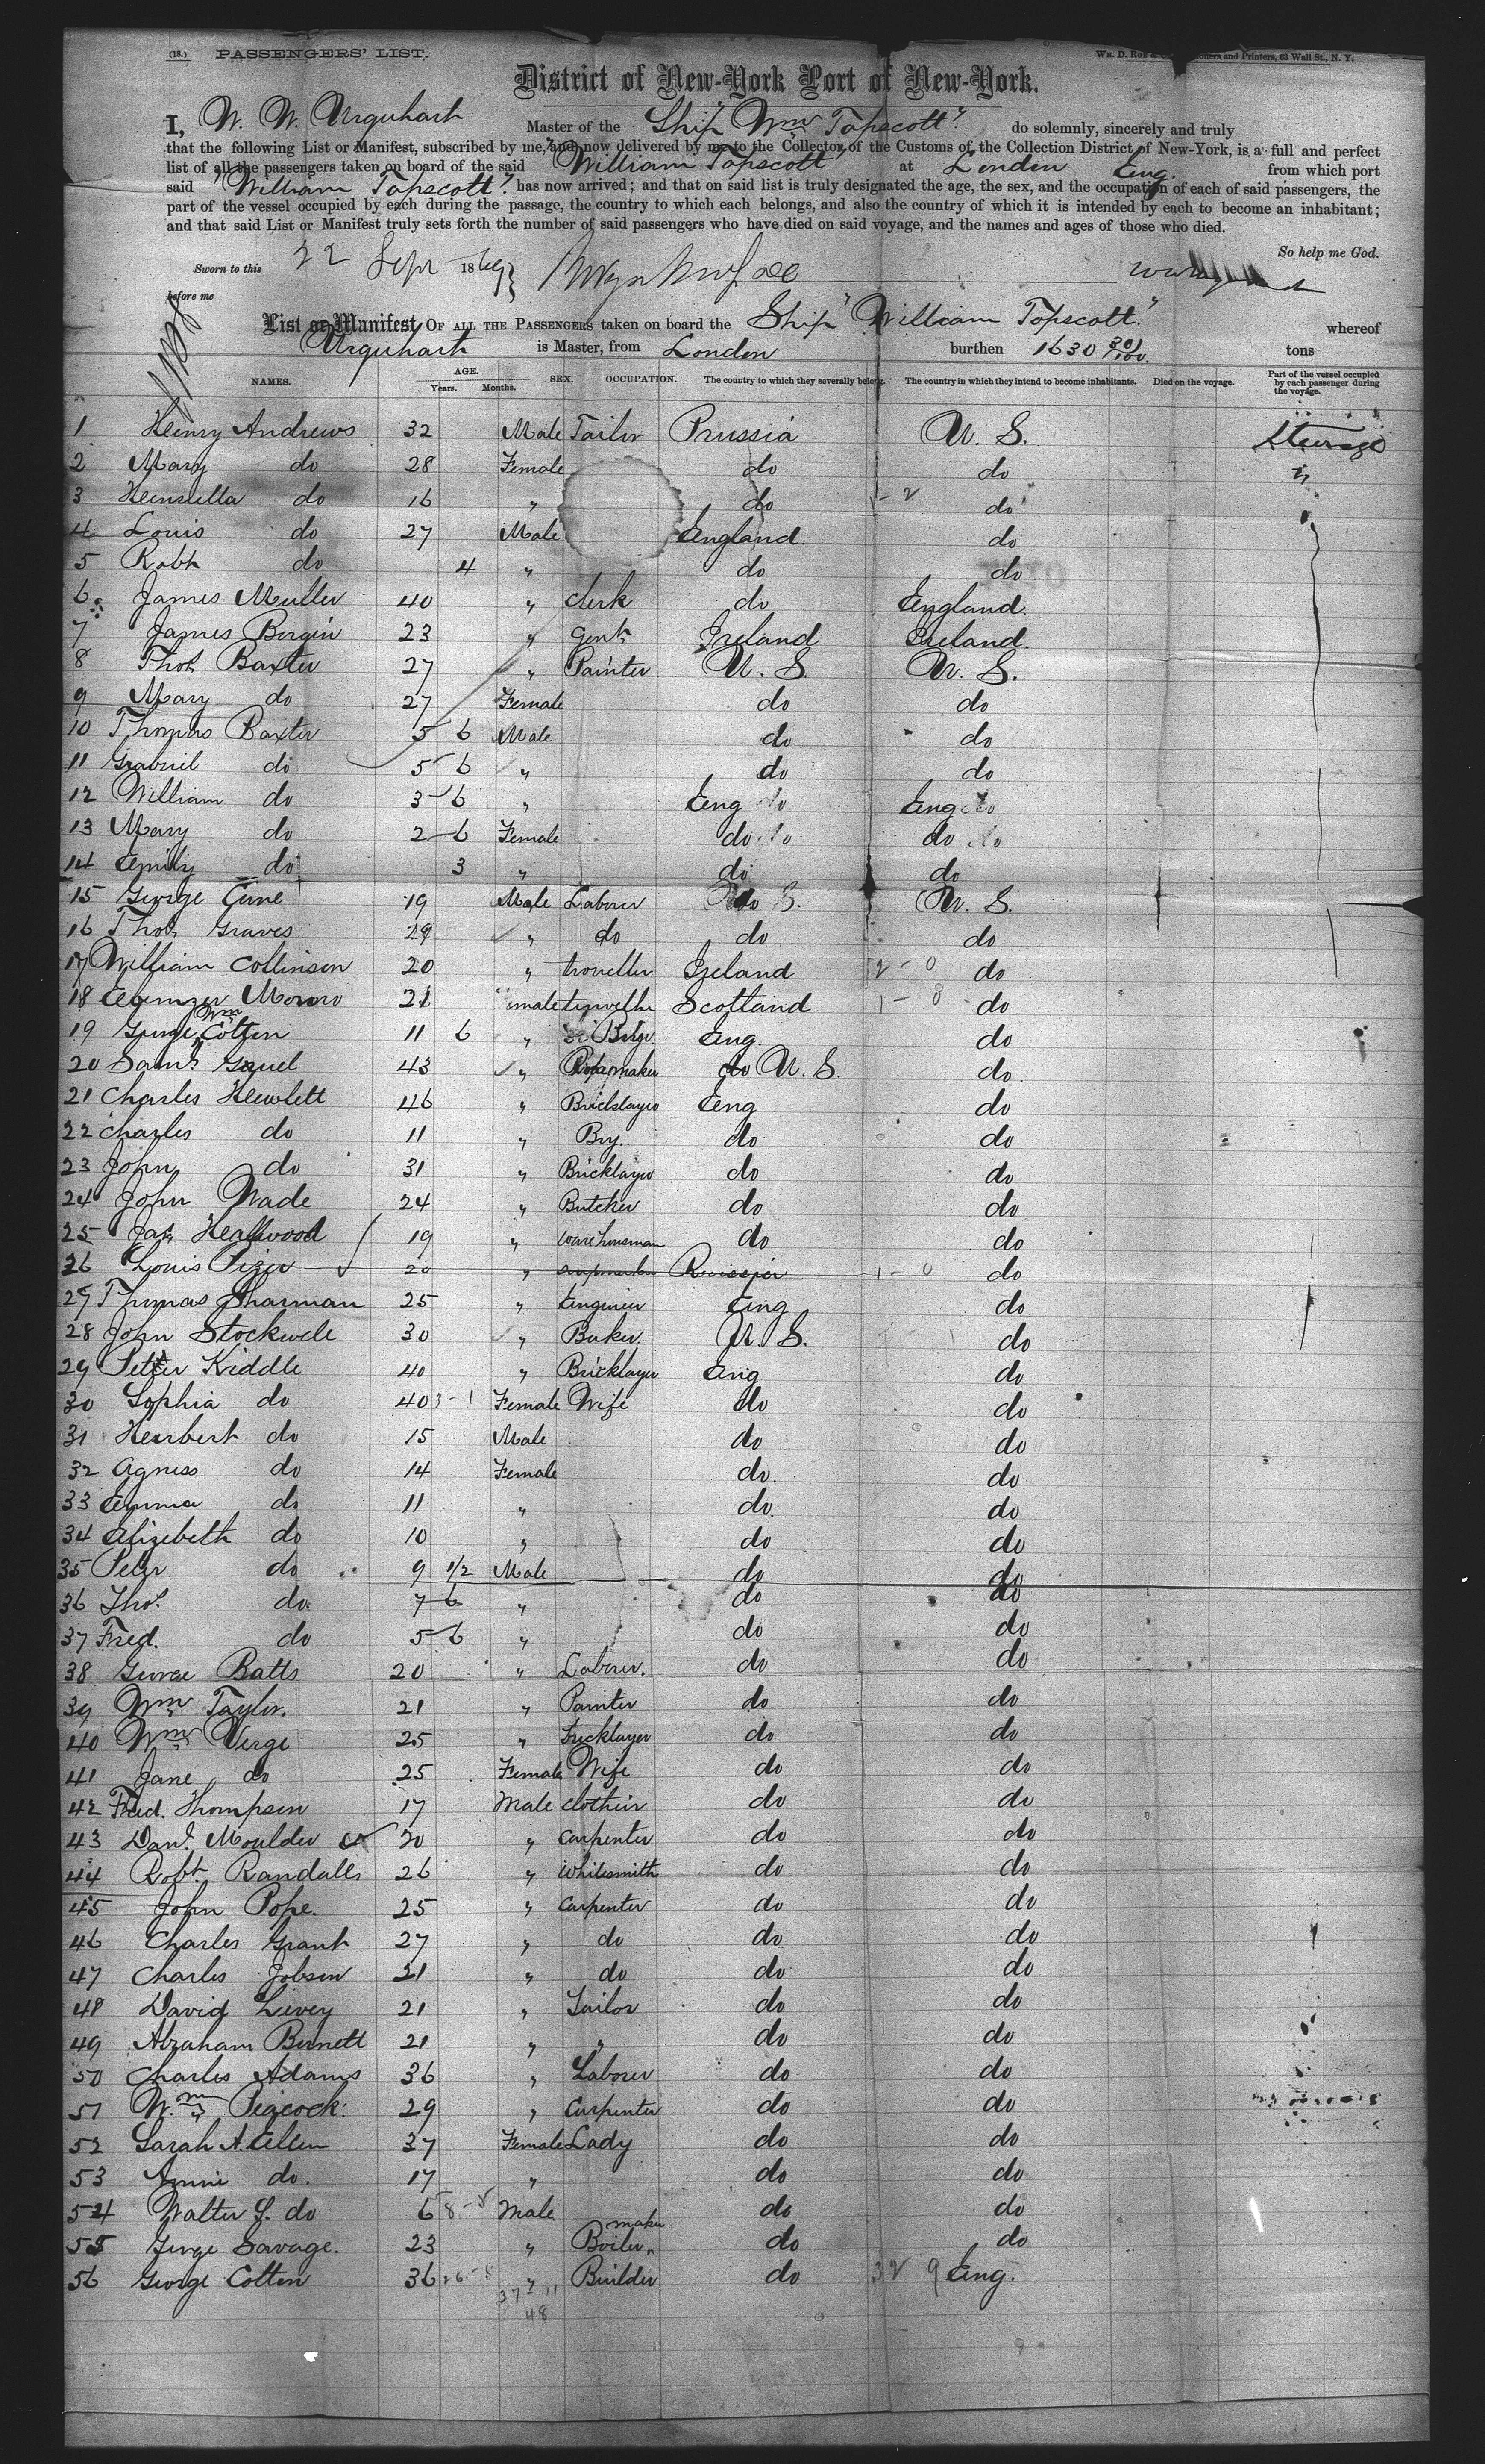 (18.) PASSENGERS' LIST.
District of New-York Port of New-York.
I, W. W. Urquhart Master of the Ship "Wm Tapscott" do solemnly, sincerely and truly
that the following List or Manifest, subscribed by me, and now delivered by me to the Collector of the Customs of the Collection District of New-York, is a full and perfect
list of all the passengers taken on board of the said "William Tapscott" at London Eng. from which port
said "William Tapscott" has now arrived; and that on said list is truly designated the age, the sex, and the occupation of each of said passengers, the
part of the vessel occupied by each during the passage, the country to which each belongs, and also the country of which it is intended by each to become an inhabitant;
and that said List or Manifest truly sets forth the number of said passengers who have died on said voyage, and the names and ages of those who died.
So help me God.
Sworn to this 22 Sept 1869
before me
List or Manifest OF ALL THE PASSENGERS taken on board the Ship "William Tapscott" whereof
Urquhart is Master, from London burthen 1630 30/100 tons
NAMES. AGE. Years. Months. SEX. OCCUPATION. The country to which they severally belong. The country in which they intend to become inhabitants. Died on the voyage. Part of the vessel occupied by each passenger during the voyage.
1 Henry Andrews 32 Male Tailor Prussia U. S. Steerage
2 Mary do 28 Female do do "
3 Henrietta do 16 " do do
4 Louis do 27 Male England do
5 Robt do 4 " do do
6 James Muller 40 " Clerk do England.
7 James Bergin 23 " Gent Ireland Ireland.
8 Thos Baxter 27 " Painter U. S. U. S.
9 Mary do 27 Female do do
10 Thomas Baxter 5 6 Male do do
11 Gabriel do 5 6 " do do
12 William do 3 6 " Eng Eng
13 Mary do 2 6 Female do do
14 Emily do 3 " do do
15 George Cune 19 Male Laborer do U. S.
16 Thos Graves 29 " do do do
17 William Collinson 20 " traveller Ireland do
18 Ebenezer 21 male Scotland do
19 George Wm Cotten 11 6 " Eng. do
20 Saml 43 " Ropemaker U. S. do
21 Charles Hewlett 46 " Bricklayer Eng do
22 Charles do 11 " Boy. do do
23 John do 31 " Bricklayer do do
24 John Wade 24 " Butcher do do
25 Jas Heallwood 19 " warehouseman do do
26 Louis Pizer 20 " Russia do
27 Thomas Sharman 25 " Engineer Eng do
28 John Stockwell 30 " Baker. U. S. do
29 Peter Kiddle 40 " Bricklayer Eng do
30 Sophia do 40 Female Wife do do
31 Herbert do 15 Male do do
32 Agness do 14 Female do. do
33 Emma do 11 " do. do
34 Elizebeth do 10 " do do
35 Peter do 9 1/2 Male do do
36 Thos. do. 7 6 " do do
37 Fred. do 5 6 " do do
38 George Batts 20 " Laborer. do do
39 Wm Taylor. 21 " Painter do do
40 Wm Verge 25 " Bricklayer do do
41 Jane do 25 Female Wife do do
42 Fred. Thompson 17 Male clothier do do
43 Danl. Moulder 20 " carpenter do do
44 Robt Randalls 26 " Whitesmith do do
45 John Pope. 25 " Carpenter do do
46 Charles Grant 27 " do do do
47 Charles Jobson 21 " do do do
48 David Livey 21 " Tailor do do
49 Abraham Bennett 21 " " do do
50 Charles Adams 36 " Laborer do do
51 Wm Peacock. 29 " Carpenter do do
52 Sarah A. Ellen 37 Female Lady do do
53 Annie do. 17 " do do
54 Walter G. do 6 Male do do
55 George Savage. 23 " Boiler maker do do
56 George Cotten 36 " Builder do Eng.